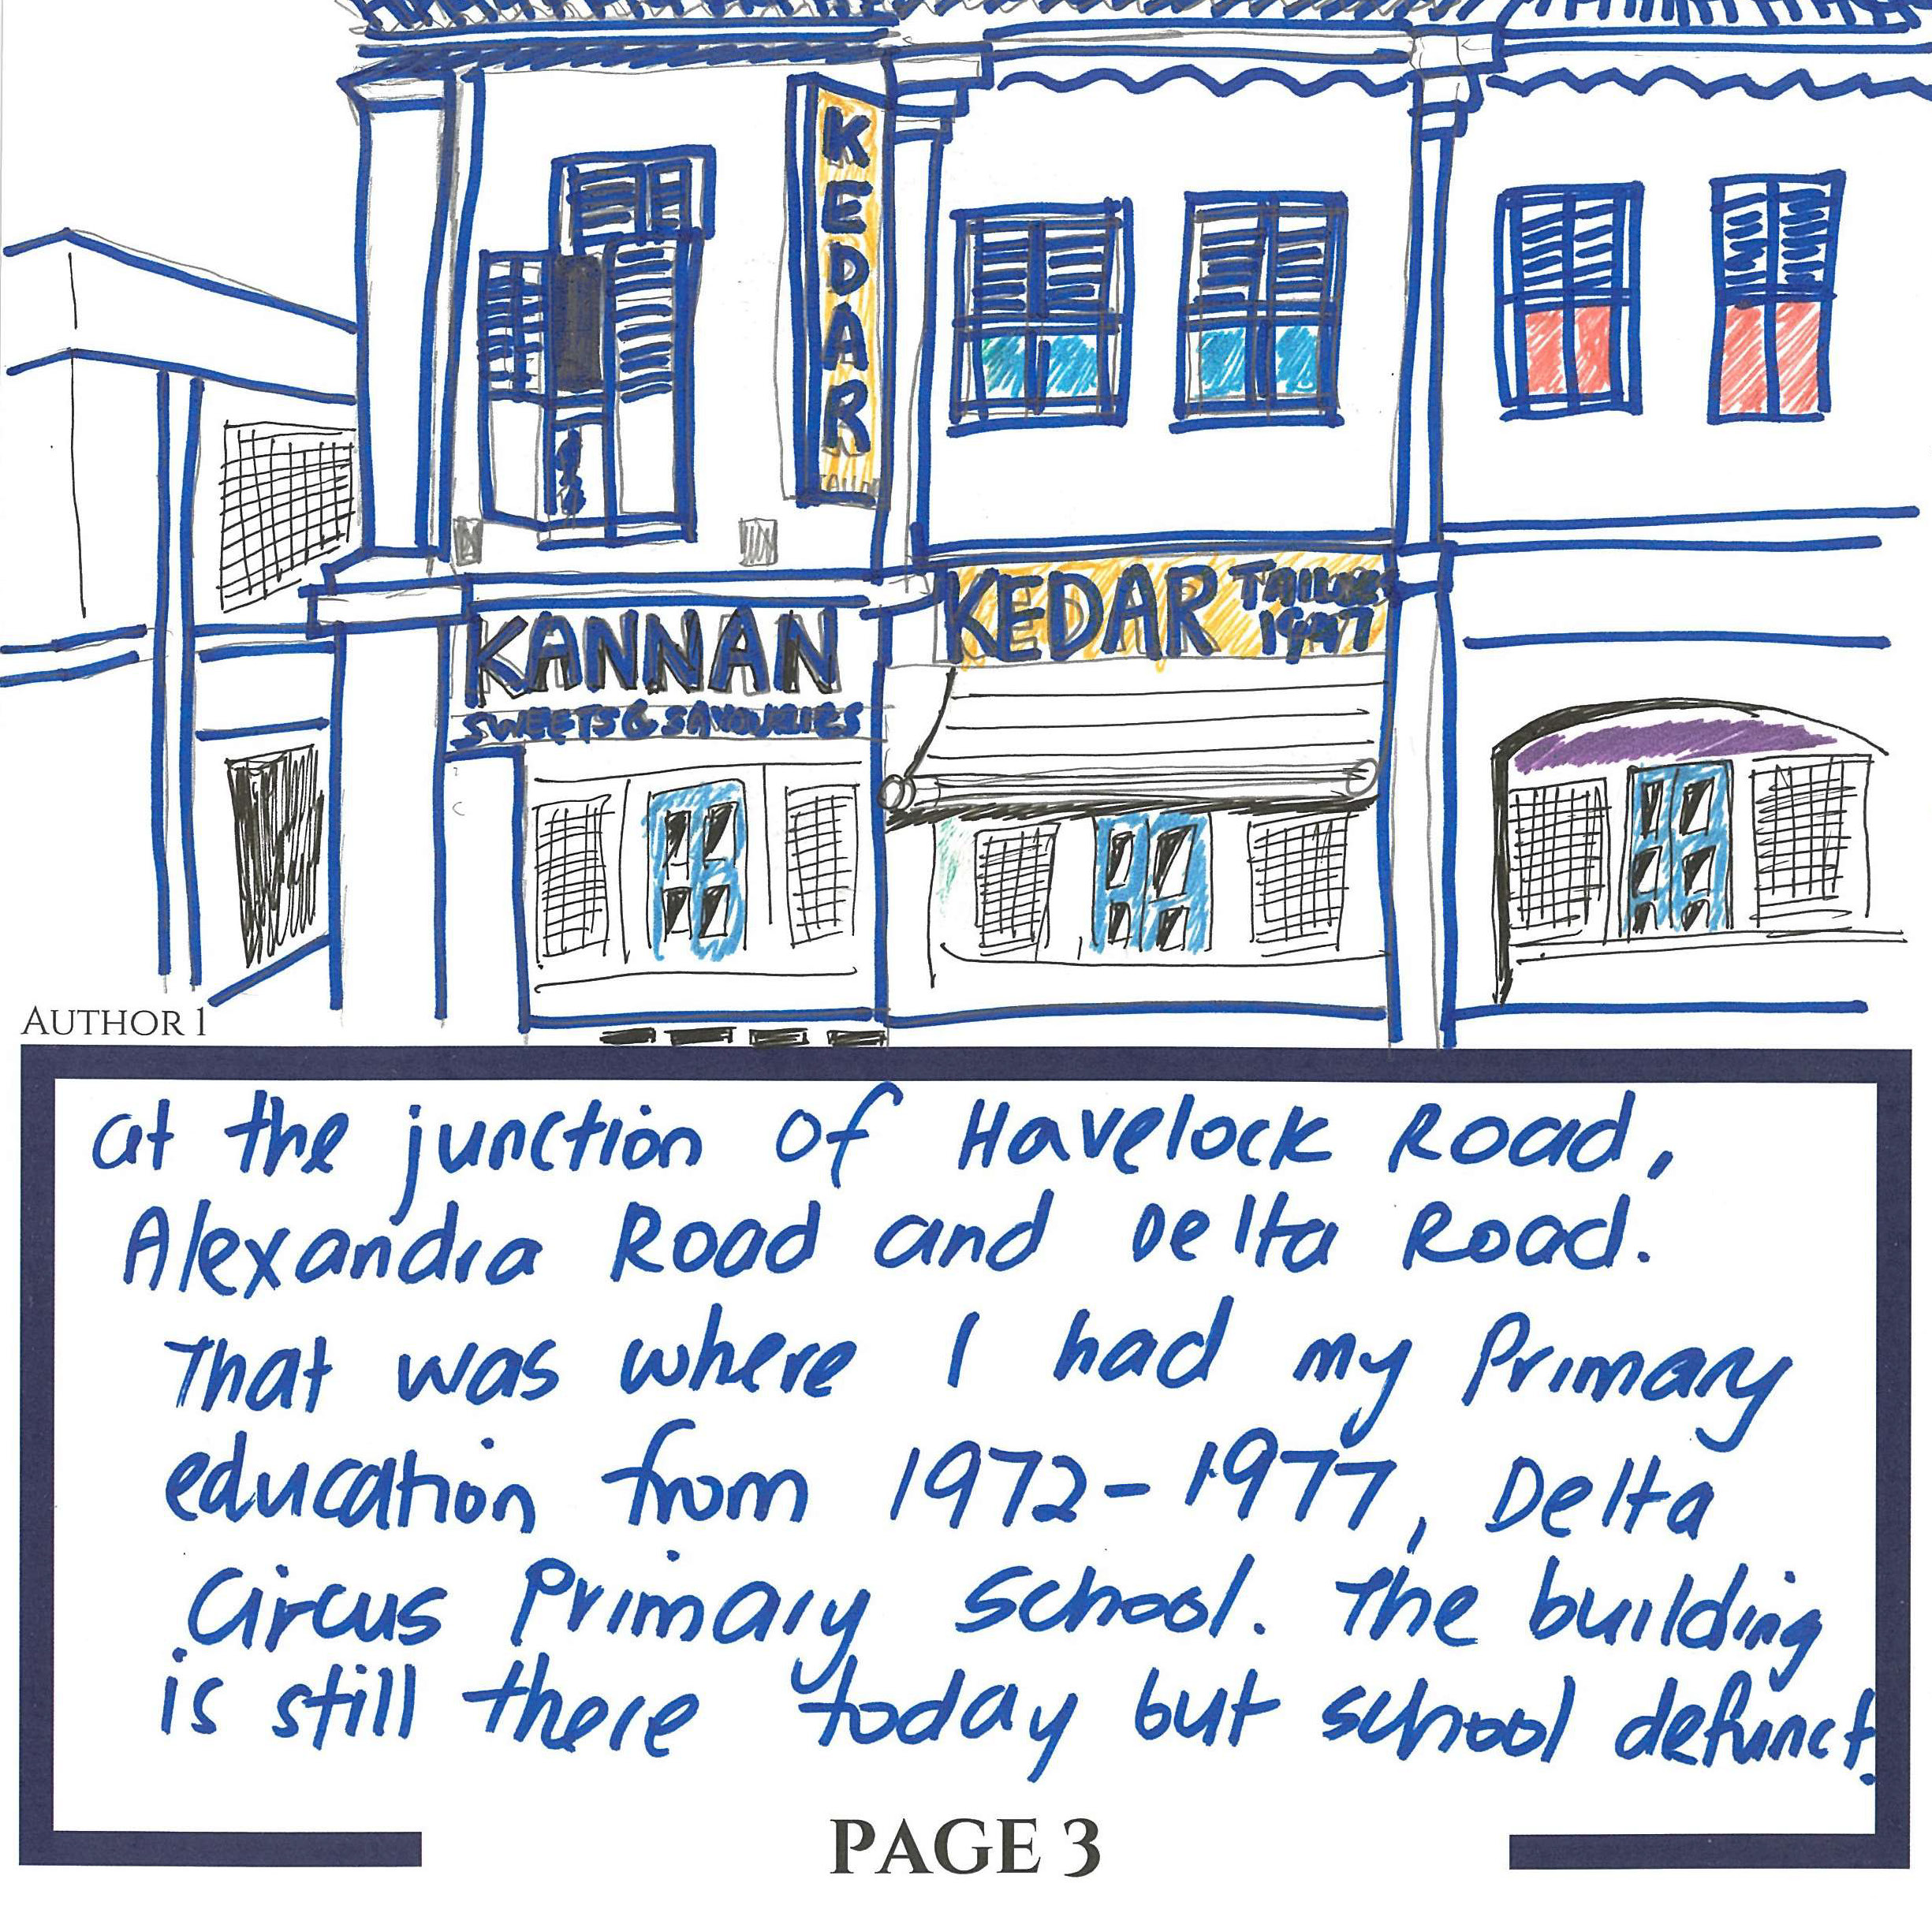 KEDAR
KANNAN
SWEETS & SAVOURIES
KEDAR TAILORS
AUTHOR 1
at the junction of Havelock Road,
Alexandra Road and Delta Road.
That was where I had my Primary
education from 1972-1977, Delta
Circus Primary School. The building
is still there today but school defunct.
PAGE 3